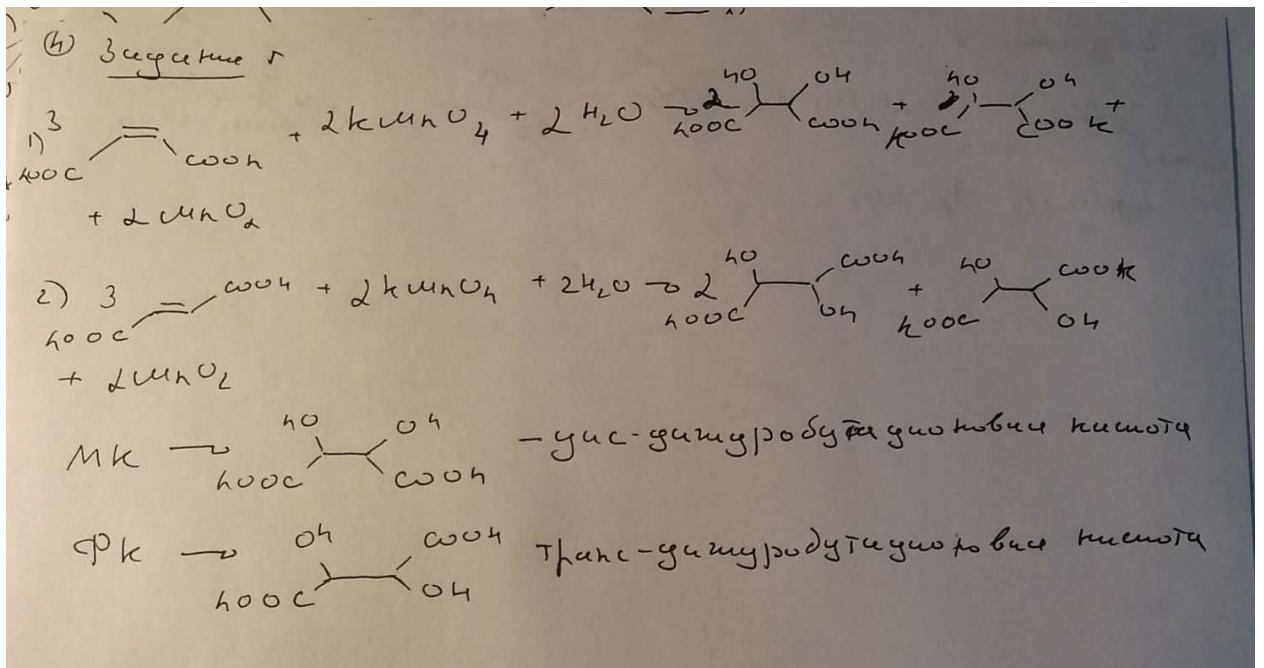 ④ Задание 5
1) 3 HOOC COOH + 2KMnO4 + 2H2O → 2 HO OH HOOC COOH + HO OH KOOC COOK +
+ 2MnO2
2) 3 HOOC COOH + 2KMnO4 + 2H2O → 2 HO COOH HOOC OH + HO COOK KOOC OH
+ 2MnO2
МК → HO OH HOOC COOH – цис-дигидробутандионовая кислота
ФК → OH COOH HOOC OH транс-дигидробутандионовая кислота